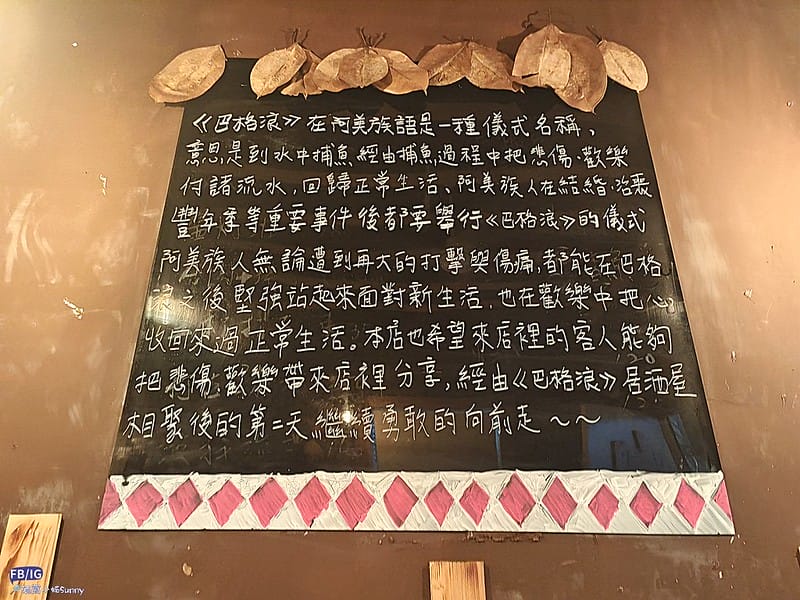 《巴格浪》在阿美族語是一種儀式名稱、
意思是到水中捕魚,經由捕魚過程中把悲傷、歡樂
付諸流水,回歸正常生活、阿美族人在結婚、治喪
豐年季等重要事件後都要舉行《巴格浪》的儀式
阿美族人無論遭到再大的打擊與傷痛,都能在巴格
浪之後堅強站起來面對新生活,也在歡樂中把心
收回來過正常生活。本店也希望來店裡的客人能夠
把悲傷、歡樂帶來店裡分享,經由《巴格浪》居酒屋
相聚後的第二天繼續勇敢的向前走~~
FB/IG
Sunny